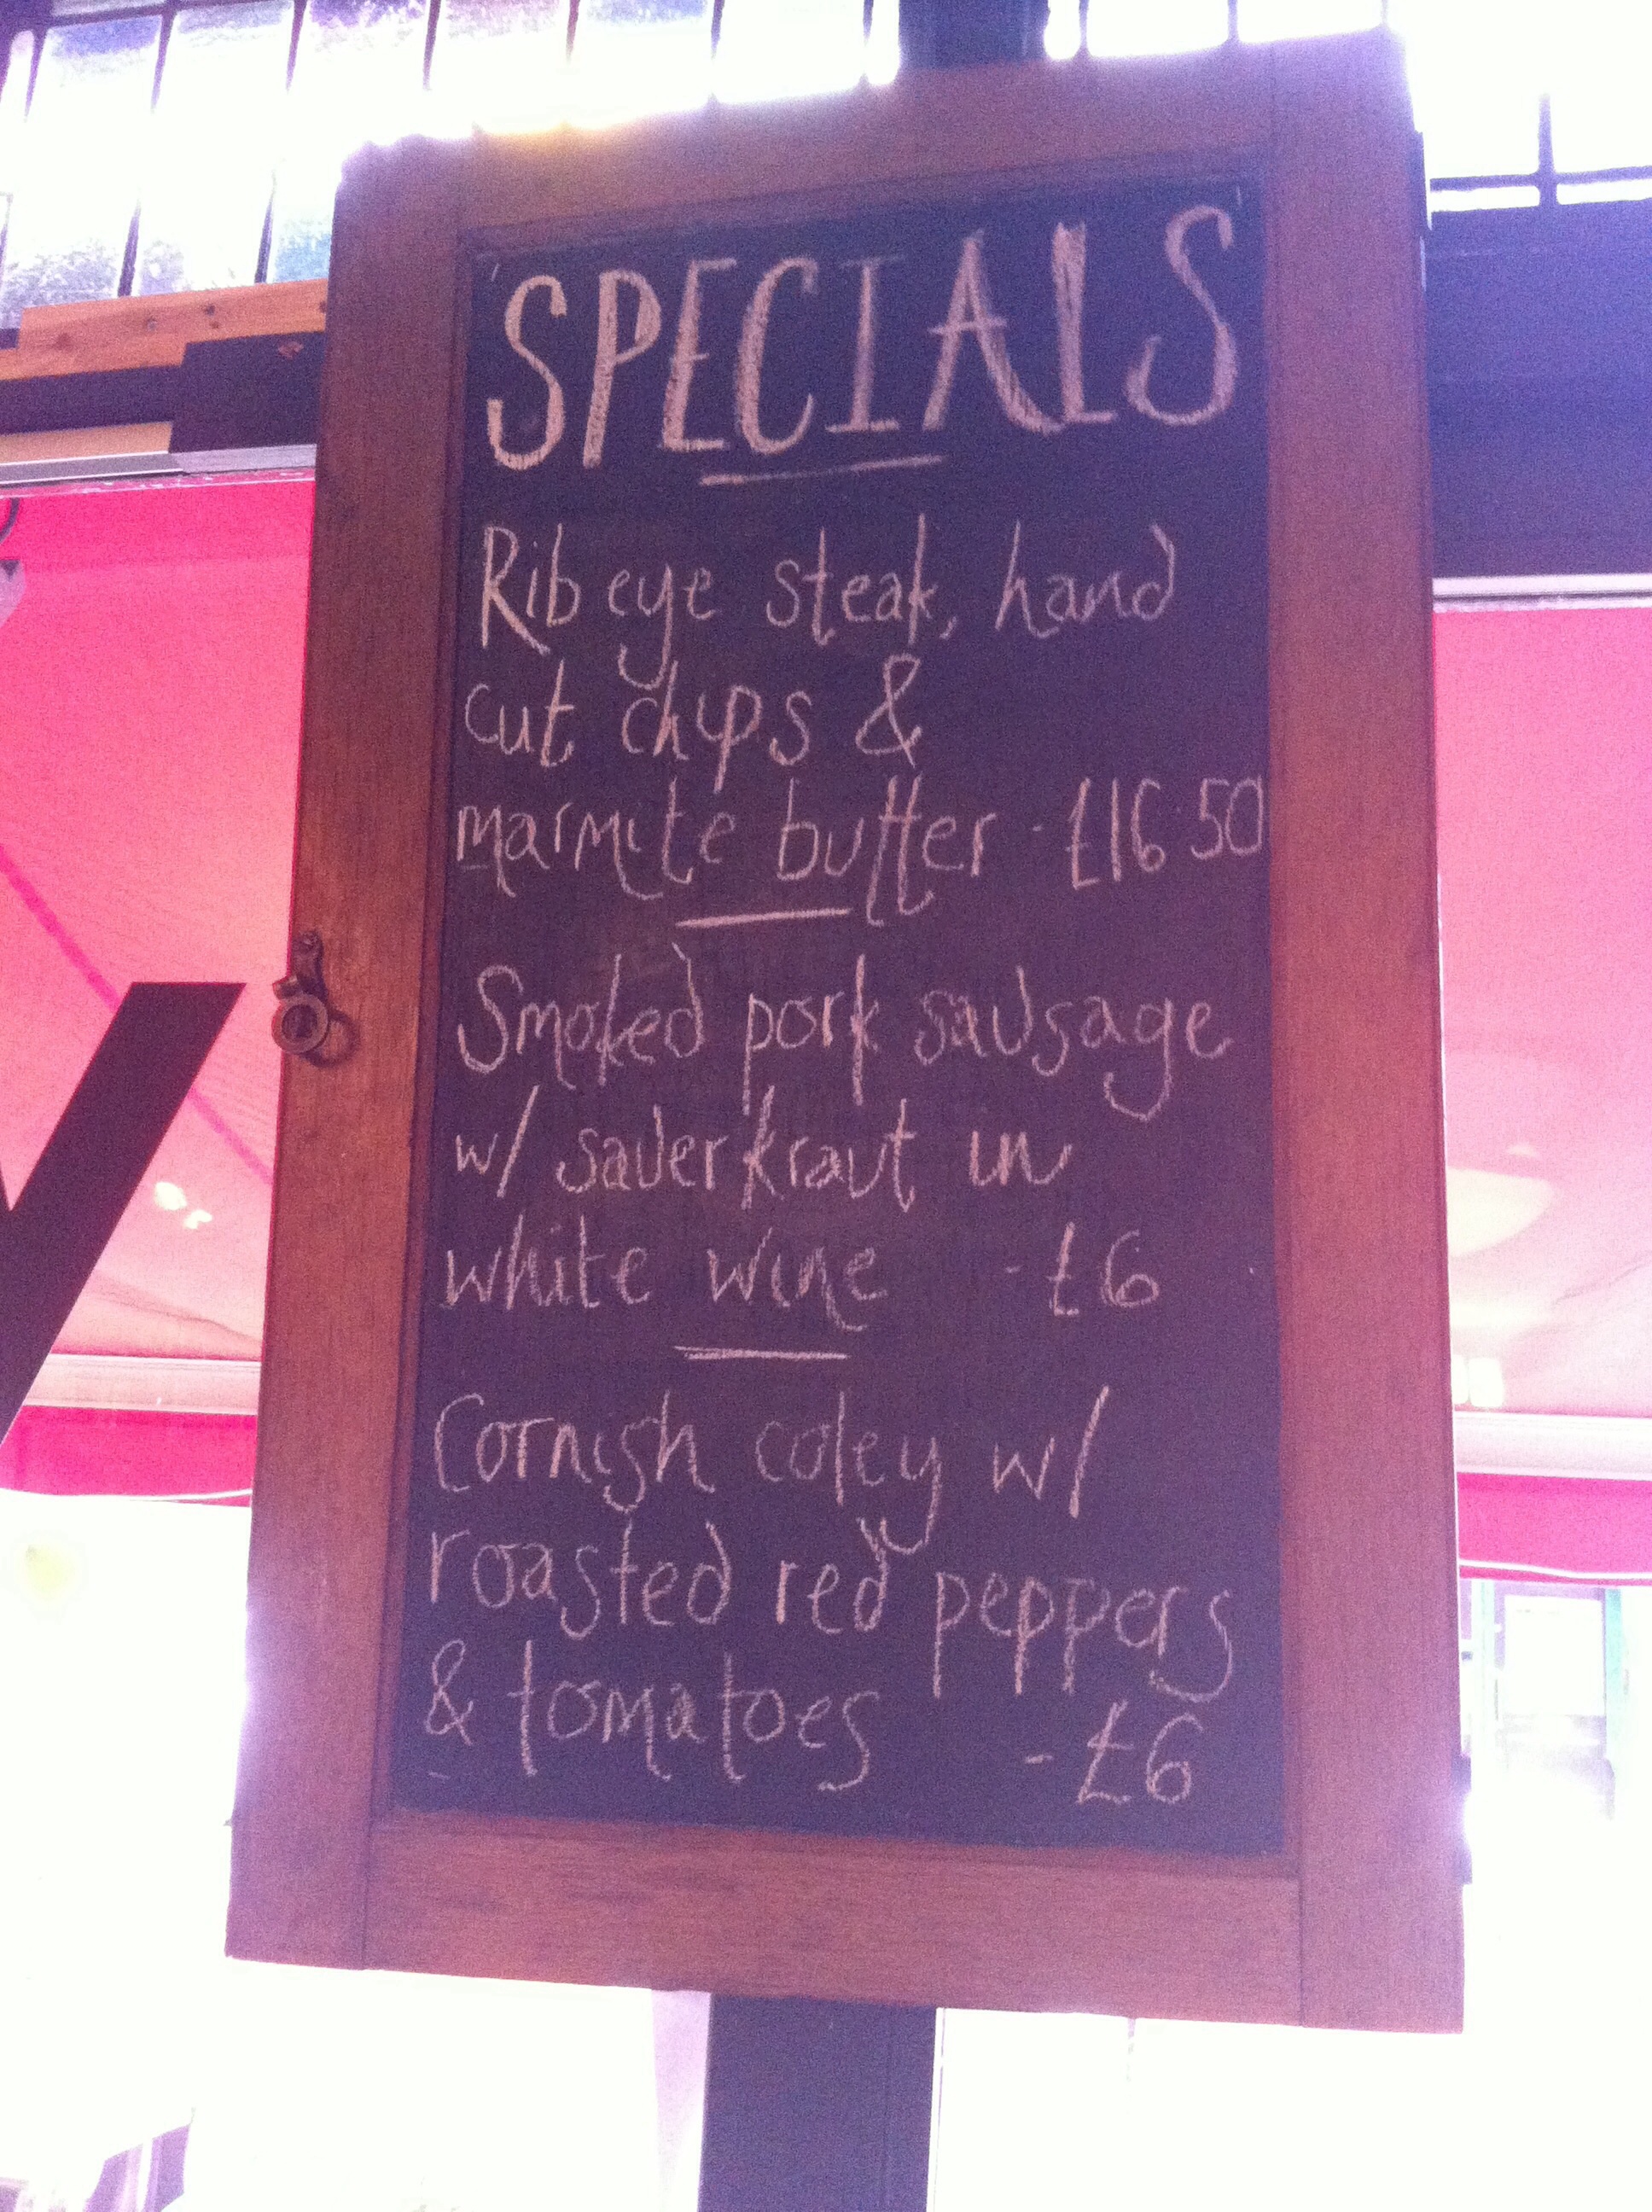 'SPECIALS'
Rib eye steak, hand
cut chips &
marmite butter - £16.50
Smoked pork sausage
w/ sauerkraut in
white wine - £6
Cornish coley w/
roasted red peppers
& tomatoes - £6